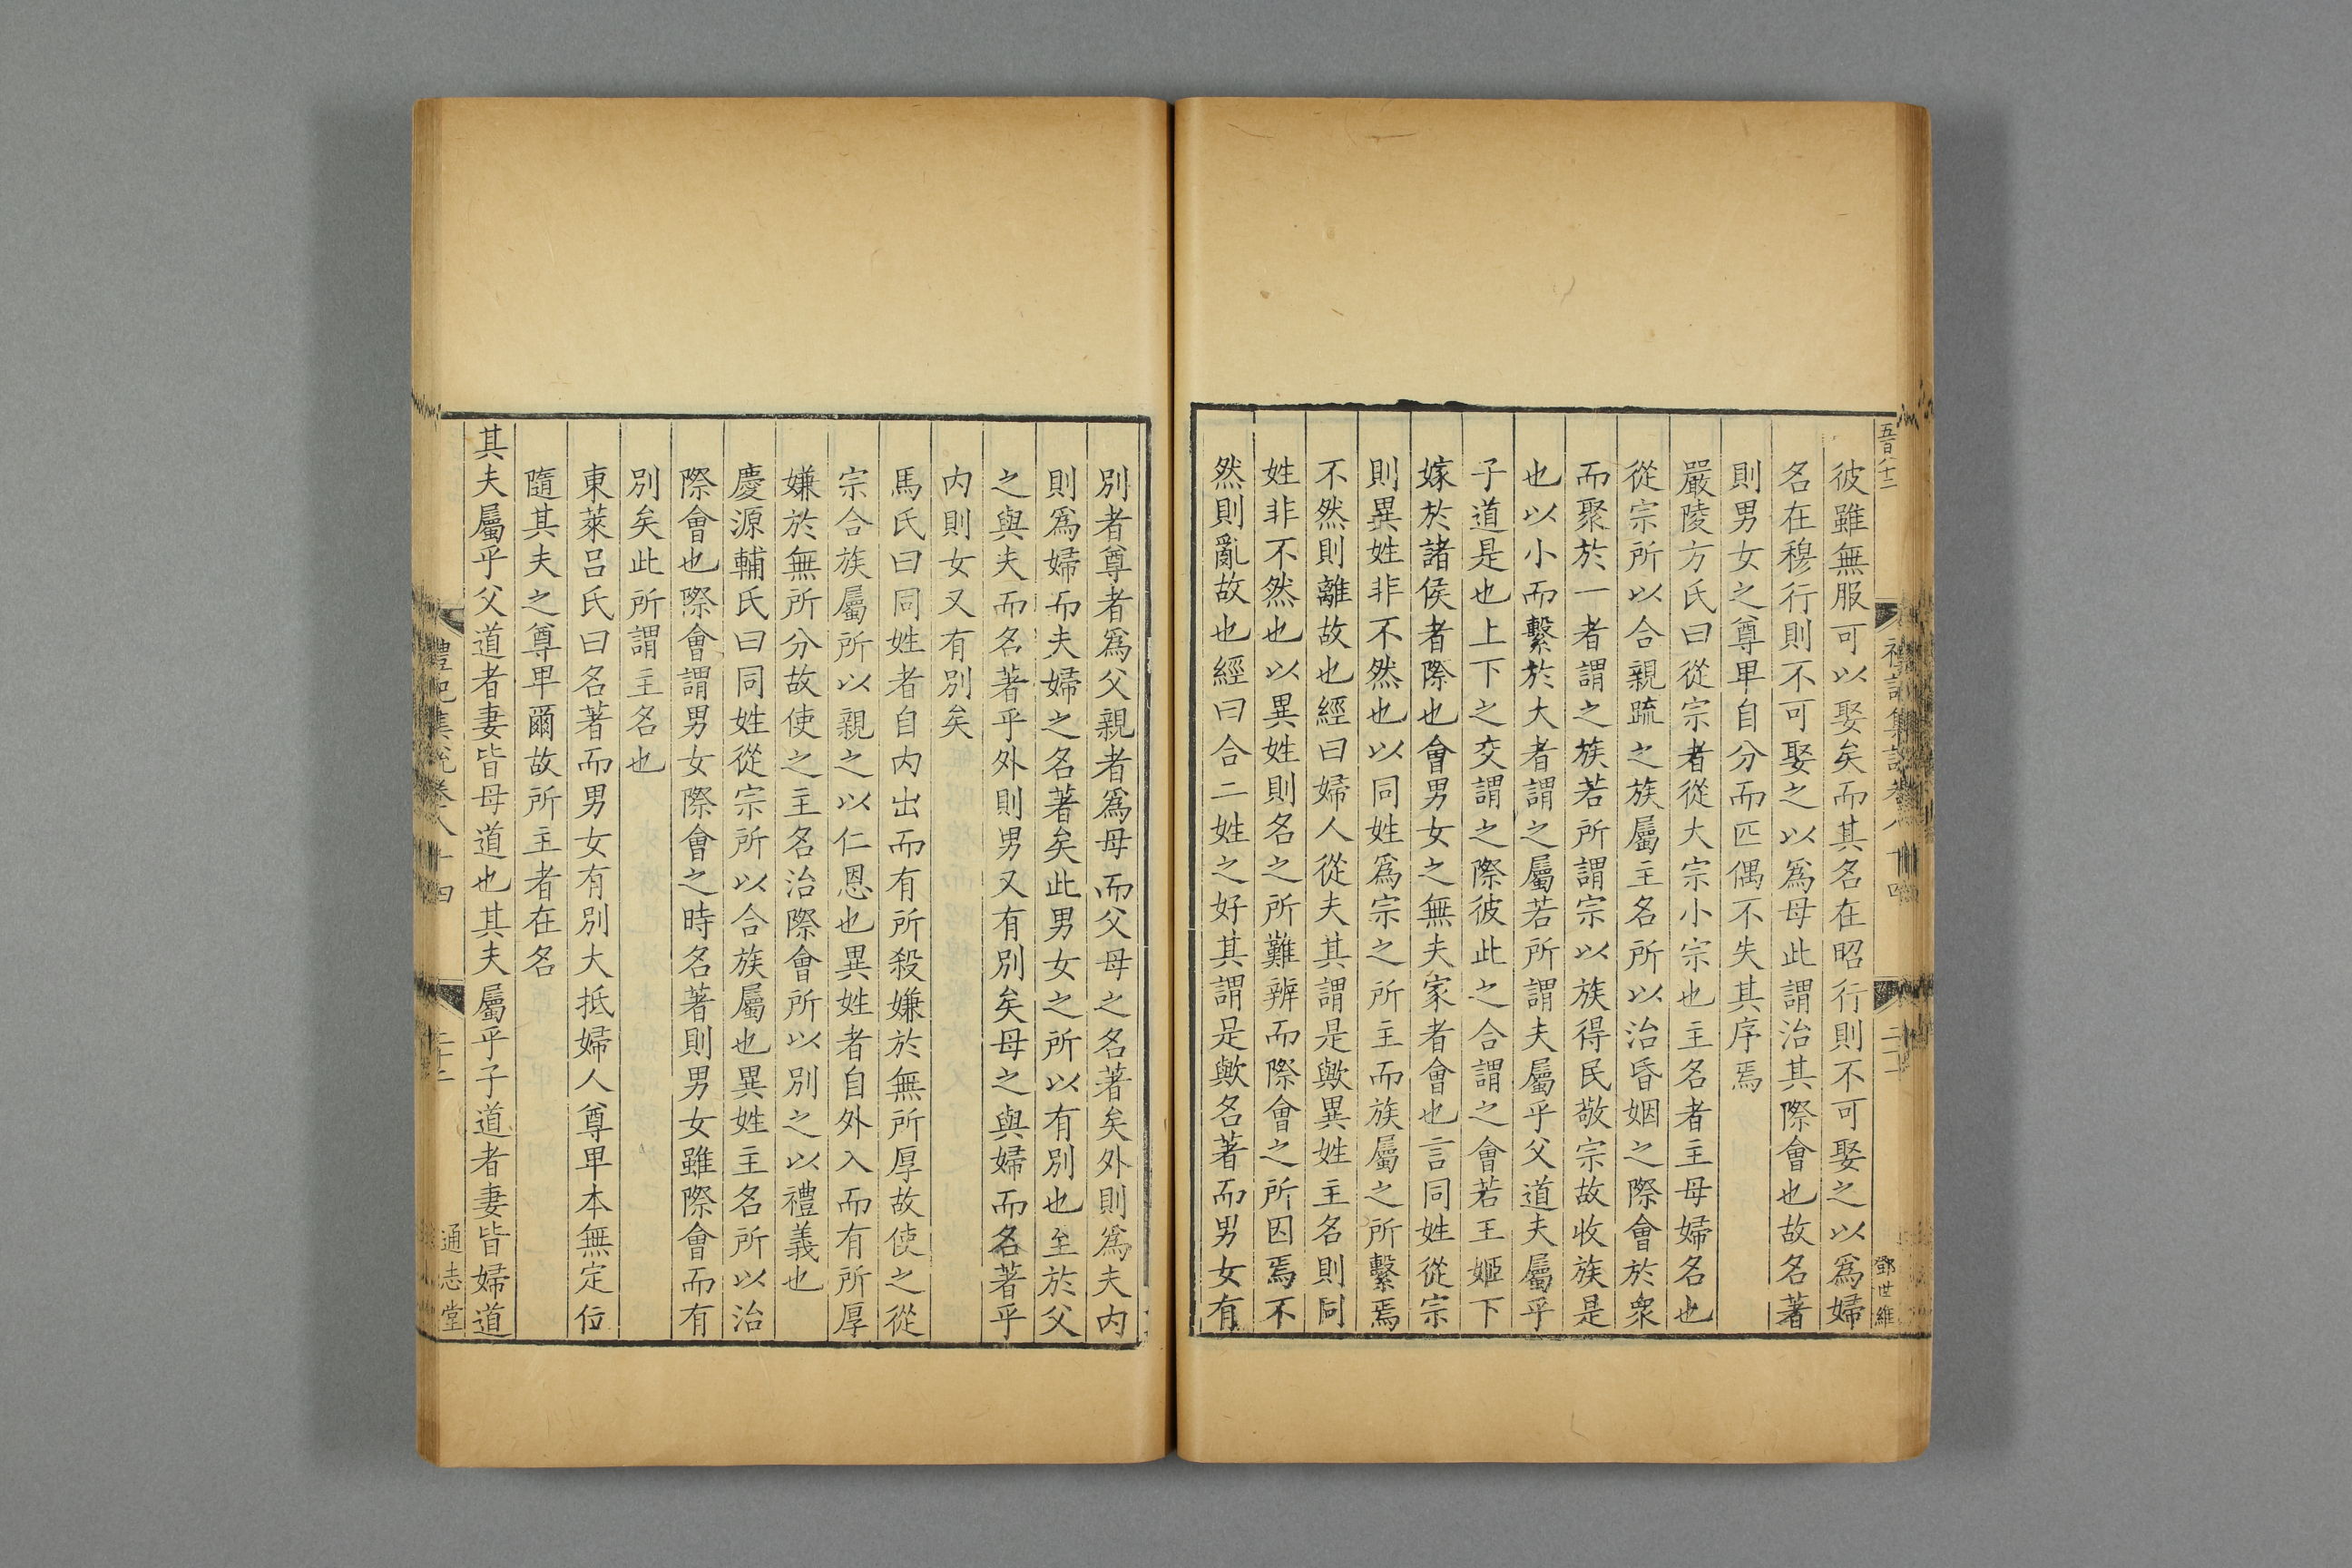 五百八十二
禮記集說卷八十四
二十一
鄧世維
彼雖無服可以娶矣而其名在昭行則不可娶之以爲婦
名在穆行則不可娶之以爲母此謂治其際會也故名著
則男女之尊卑自分而匹偶不失其序焉
嚴陵方氏曰從宗者從大宗小宗也主名者主母婦名也
從宗所以合親䟽之族屬主名所以治昏姻之際會於衆
而聚於一者謂之族若所謂宗以族得民敬宗故收族是
也以小而繫於大者謂之屬若所謂夫屬乎父道夫屬乎
子道是也上下之交謂之際彼此之合謂之會若王姬下
嫁於諸侯者際也會男女之無夫家者會也言同姓從宗
則異姓非不然也以同姓爲宗之所主而族屬之所繫焉
不然則離故也經曰婦人從夫其謂是歟異姓主名則同
姓非不然也以異姓則名之所難辨而際會之所因焉不
然則亂故也經曰合二姓之好其謂是歟名著而男女有
別者尊者爲父親者爲母而父母之名著矣外則爲夫内
則爲婦而夫婦之名著矣此男女之所以有別也至於父
之與夫而名著乎外則男又有別矣母之與婦而名著乎
内則女又有別矣
馬氏曰同姓者自内出而有所殺嫌於無所厚故使之從
宗合族屬所以親之以仁恩也異姓者自外入而有所厚
嫌於無所分故使之主名治際會所以別之以禮義也
慶源輔氏曰同姓從宗所以合族屬也異姓主名所以治
際會也際會謂男女際會之時名著則男女雖際會而有
別矣此所謂主名也
東萊呂氏曰名著而男女有別大抵婦人尊卑本無定位
隨其夫之尊卑爾故所主者在名
其夫屬乎父道者妻皆母道也其夫屬乎子道者妻皆婦道
禮記集說卷八十四
通志堂